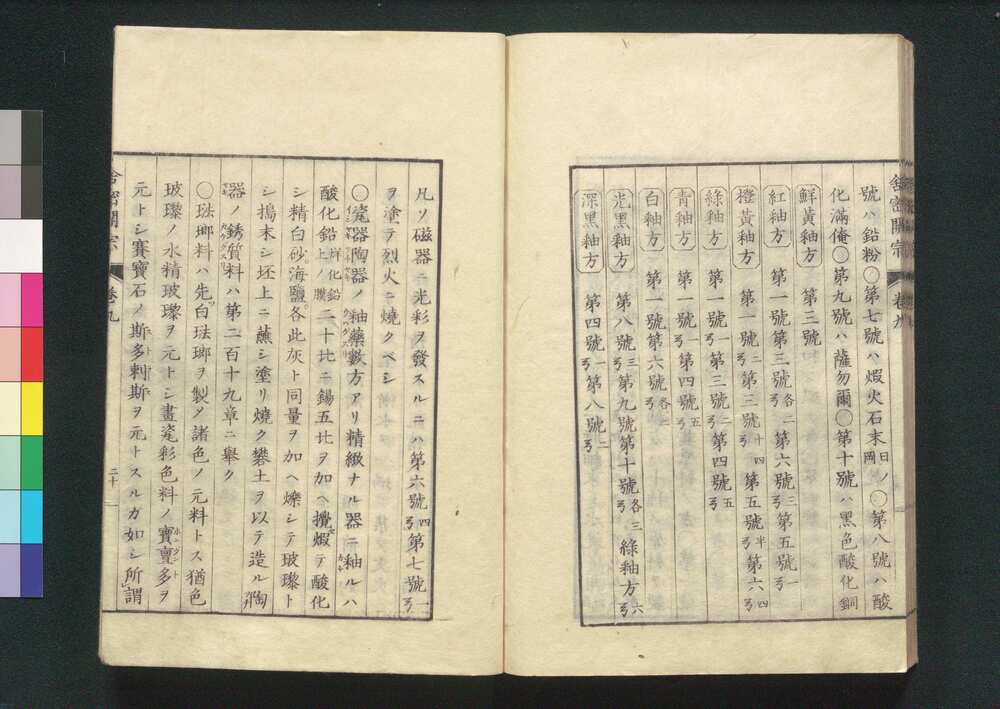 號ハ鉛粉○第七號ハ煆火石末日ノ岡○第八號ハ酸
化滿俺○第九號ハ薩勿爾○第十號ハ黑色酸化銅
鮮黃釉方 第三號
紅釉方 第一號第三號各二第六號三第五號一㔫
橙黃釉方 第一號二第三號十四第五號半第六四
綠釉方 第一號一第三號二第四號五
青釉方 第一號一第四號五
白釉方 第一號第六號各二
光黑釉方 第八號三第九號第十號各三 綠釉方六
深黑釉方 第四號一第八號二
舎密開宗 卷九
凡ソ磁器ニ光彩ヲ發スルニハ第六號四第七號一
ヲ塗テ烈火ニ燒クベシ
○瓷器陶器ノ釉藥數方アリ精緻ナル器ニ釉ルハ
酸化鉛鉛上ノ二十比ニ錫五比ヲ加ヘ攪煆テ酸化
シ精白砂海鹽各此灰ト同量ヲ加ヘ爍シテ玻瓈ト
シ搗末シ坯上ニ蘸シ塗リ燒ク礬土ヲ以テ造ル陶
器ノ銹質料ハ第二百十九章ニ擧ク
○琺瑯料ハ先白琺瑯ヲ製〆諸色ノ元料トス猶色
玻瓈ノ水精玻瓈ヲ元トシ畫瓷彩色料ノ寶寶多ヲ
元トシ賽寶石ノ斯多剌斯ヲ元トスルカ如シ所謂
舎密開宗 卷九 二十一